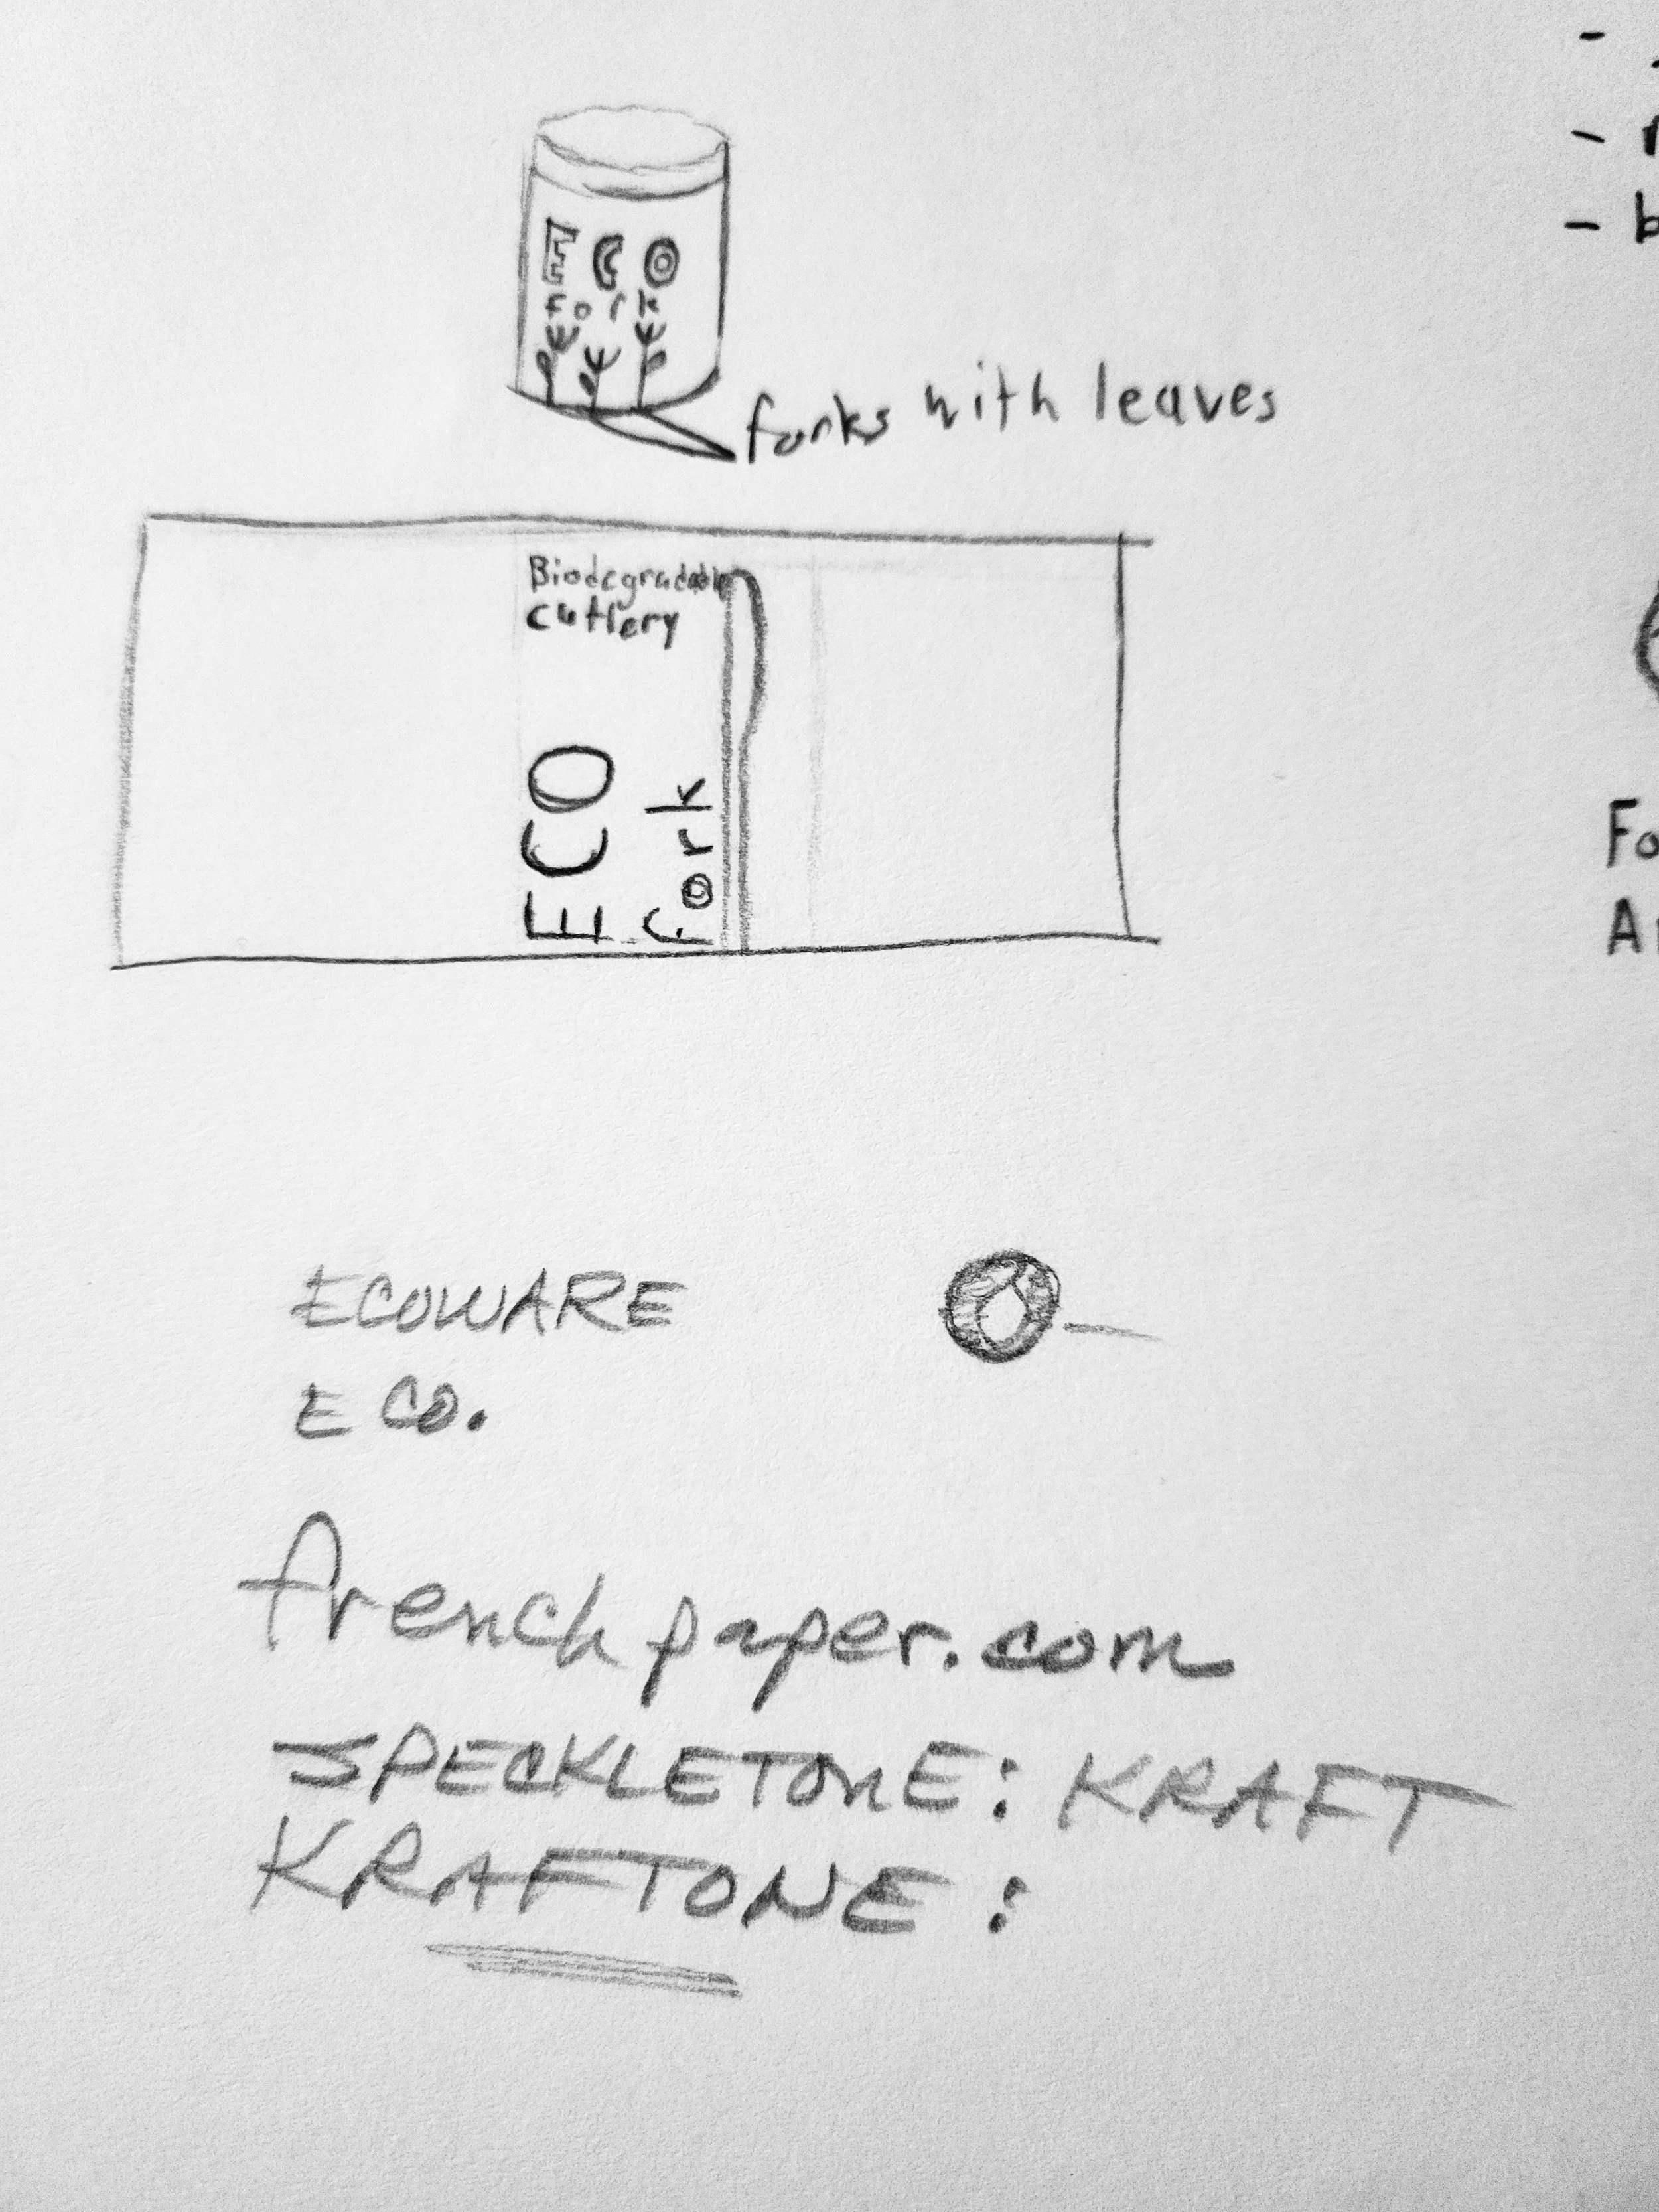 ECO
fork
forks with leaves
Biodegradable
cutlery
ECO
fork
ECOWARE
E CO.
frenchpaper.com
SPECKLETONE: KRAFT
KRAFTONE:
- 
- 
- b
Fo
A